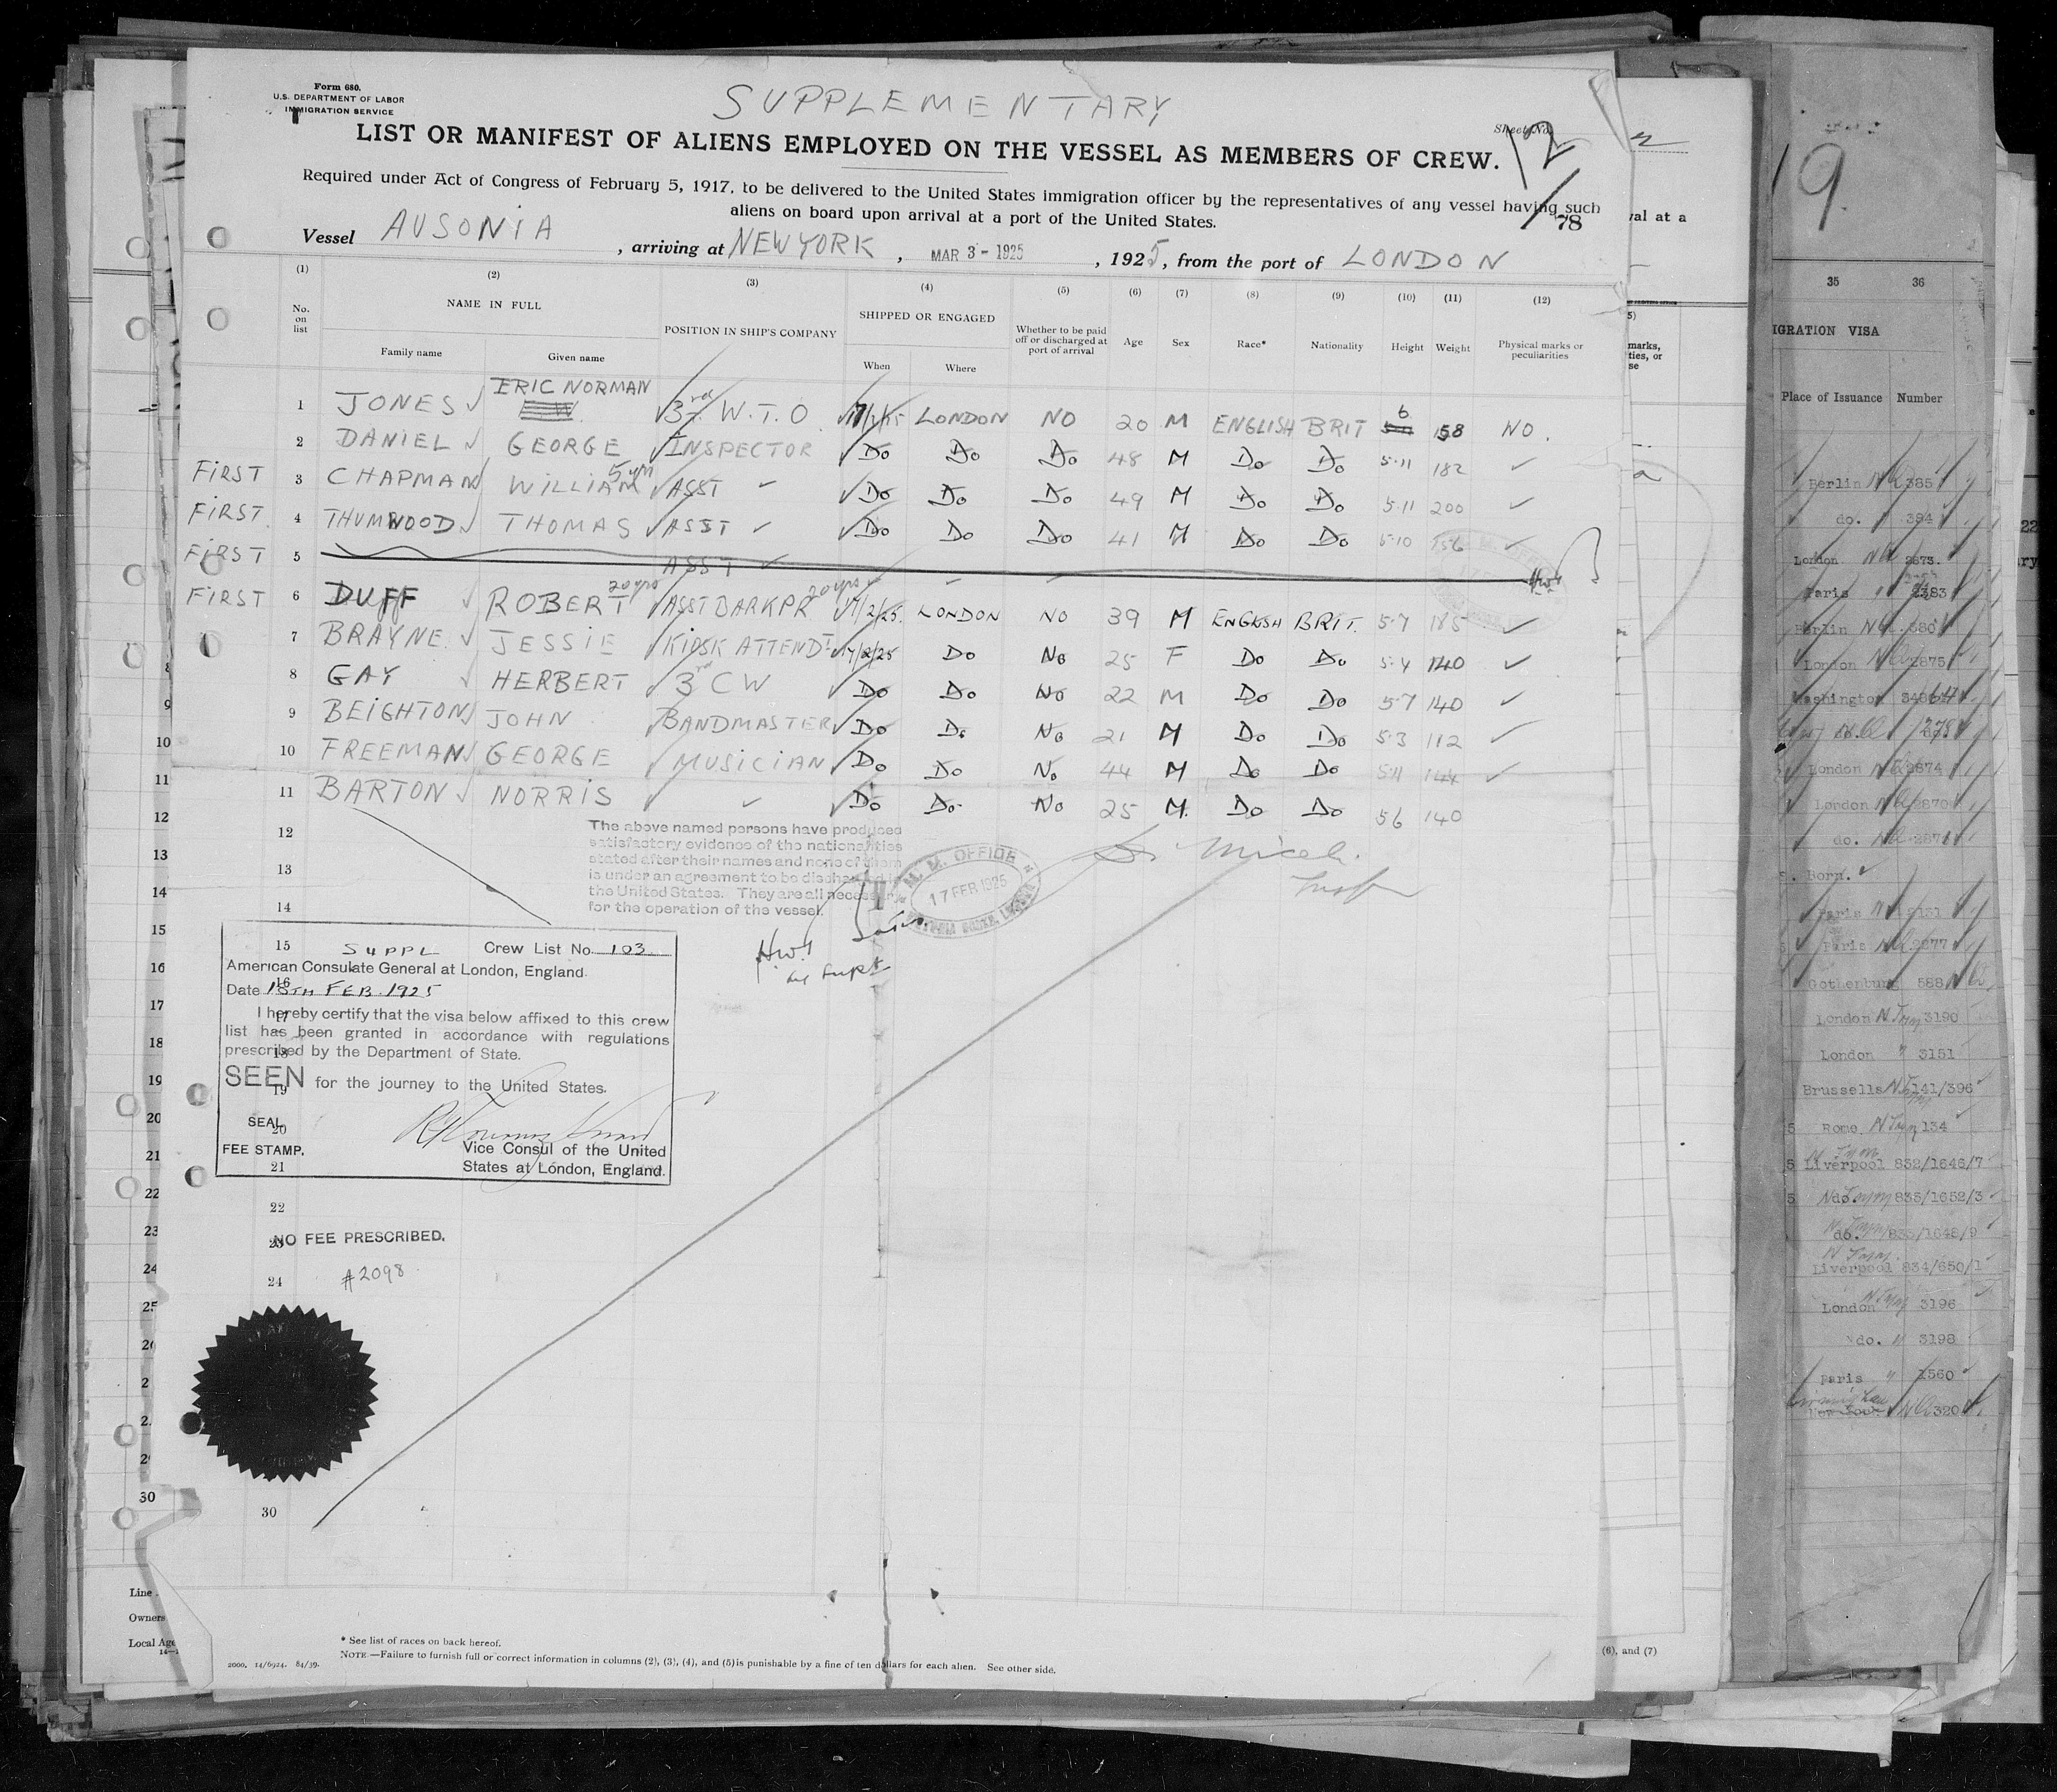 Form 680.
U.S. DEPARTMENT OF LABOR
IMMIGRATION SERVICE
SUPPLEMENTARY
Sheet No. 12
LIST OR MANIFEST OF ALIENS EMPLOYED ON THE VESSEL AS MEMBERS OF CREW.
Required under Act of Congress of February 5, 1917, to be delivered to the United States immigration officer by the representatives of any vessel having such
aliens on board upon arrival at a port of the United States.
78
Vessel AUSONIA, arriving at NEW YORK, MAR 3 - 1925, 1925, from the port of LONDON
(1) (2) (3) (4) (5) (6) (7) (8) (9) (10) (11) (12)
No. on list NAME IN FULL Family name Given name POSITION IN SHIP'S COMPANY SHIPPED OR ENGAGED When Where Whether to be paid off or discharged at port of arrival Age Sex Race* Nationality Height Weight Physical marks or peculiarities
1 JONES ERIC NORMAN 3rd W.T.O 17/2/25 LONDON NO 20 M ENGLISH BRIT 6 158 NO.
2 DANIEL GEORGE INSPECTOR Do Do Do 48 M Do Do 5-11 182
FIRST 3 CHAPMAN WILLIAM 5 yrs ASST Do Do Do 49 M Do Do 5-11 200
FIRST 4 THUMWOOD THOMAS ASST Do Do Do 41 M Do Do 5-10 156
FIRST 5 ASST
FIRST 6 DUFF ROBERT 20 yrs ASST BARKPR 20 yrs 17/2/25. LONDON NO 39 M ENGLISH BRIT. 5-7 185
7 BRAYNE JESSIE KIOSK ATTENDT 17/2/25 Do No 25 F Do Do 5-4 140
8 GAY HERBERT 3rd C W Do Do No 22 M Do Do 5-7 140
9 BEIGHTON JOHN BANDMASTER Do Do No 21 M Do Do 5-3 112
10 FREEMAN GEORGE MUSICIAN Do Do No 44 M Do Do 5-11 144
11 BARTON NORRIS Do Do No 25 M Do Do 5 6 140
12
13
14
The above named persons have produced
satisfactory evidence of the nationalities
stated after their names and none of them
is under an agreement to be discharged in
the United States. They are all necessary
for the operation of the vessel.
M. M. OFFICE
17 FEB 1925
15 SUPPL Crew List No. 103
American Consulate General at London, England.
Date 18TH FEB. 1925
I hereby certify that the visa below affixed to this crew
list has been granted in accordance with regulations
prescribed by the Department of State.
SEEN for the journey to the United States.
SEAL
FEE STAMP.
Vice Consul of the United
States at London, England.
22
NO FEE PRESCRIBED.
24 #2098
30
* See list of races on back hereof.
NOTE.—Failure to furnish full or correct information in columns (2), (3), (4), and (5) is punishable by a fine of ten dollars for each alien. See other side.
2000. 14/6924. 84/39.
Line
Owners
Local Age
(6), and (7)
val at a
marks,
ties, or
se
19.
35 36
IGRATION VISA
Place of Issuance Number
Berlin 385
do. 394
London 2873
Paris 2383
Berlin 380
London 2875
Washington
London 2874
London 2870
do. 2871
Born.
Paris
Paris 2877
Gothenburg 588
London 3190
London 3151
Brussells 141/396
Rome 134
Liverpool 832/1646/7
do. 833/1652/3
do. 833/1648/9
Liverpool 834/650/1
London 3196
do. 3198
Paris 1560
New York 320